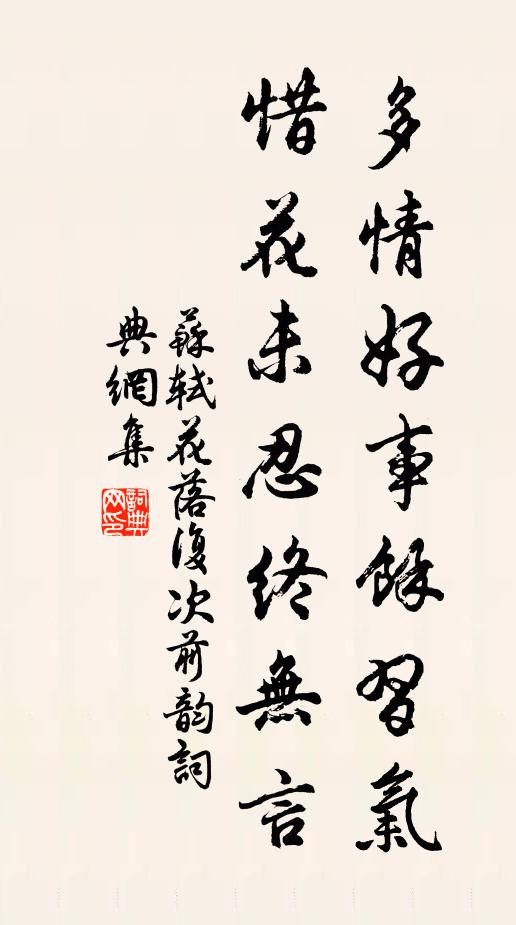 多情好事餘習氣
惜花未忍終無言
蘇軾花落復次前韵詞
典網集
詞典
网印